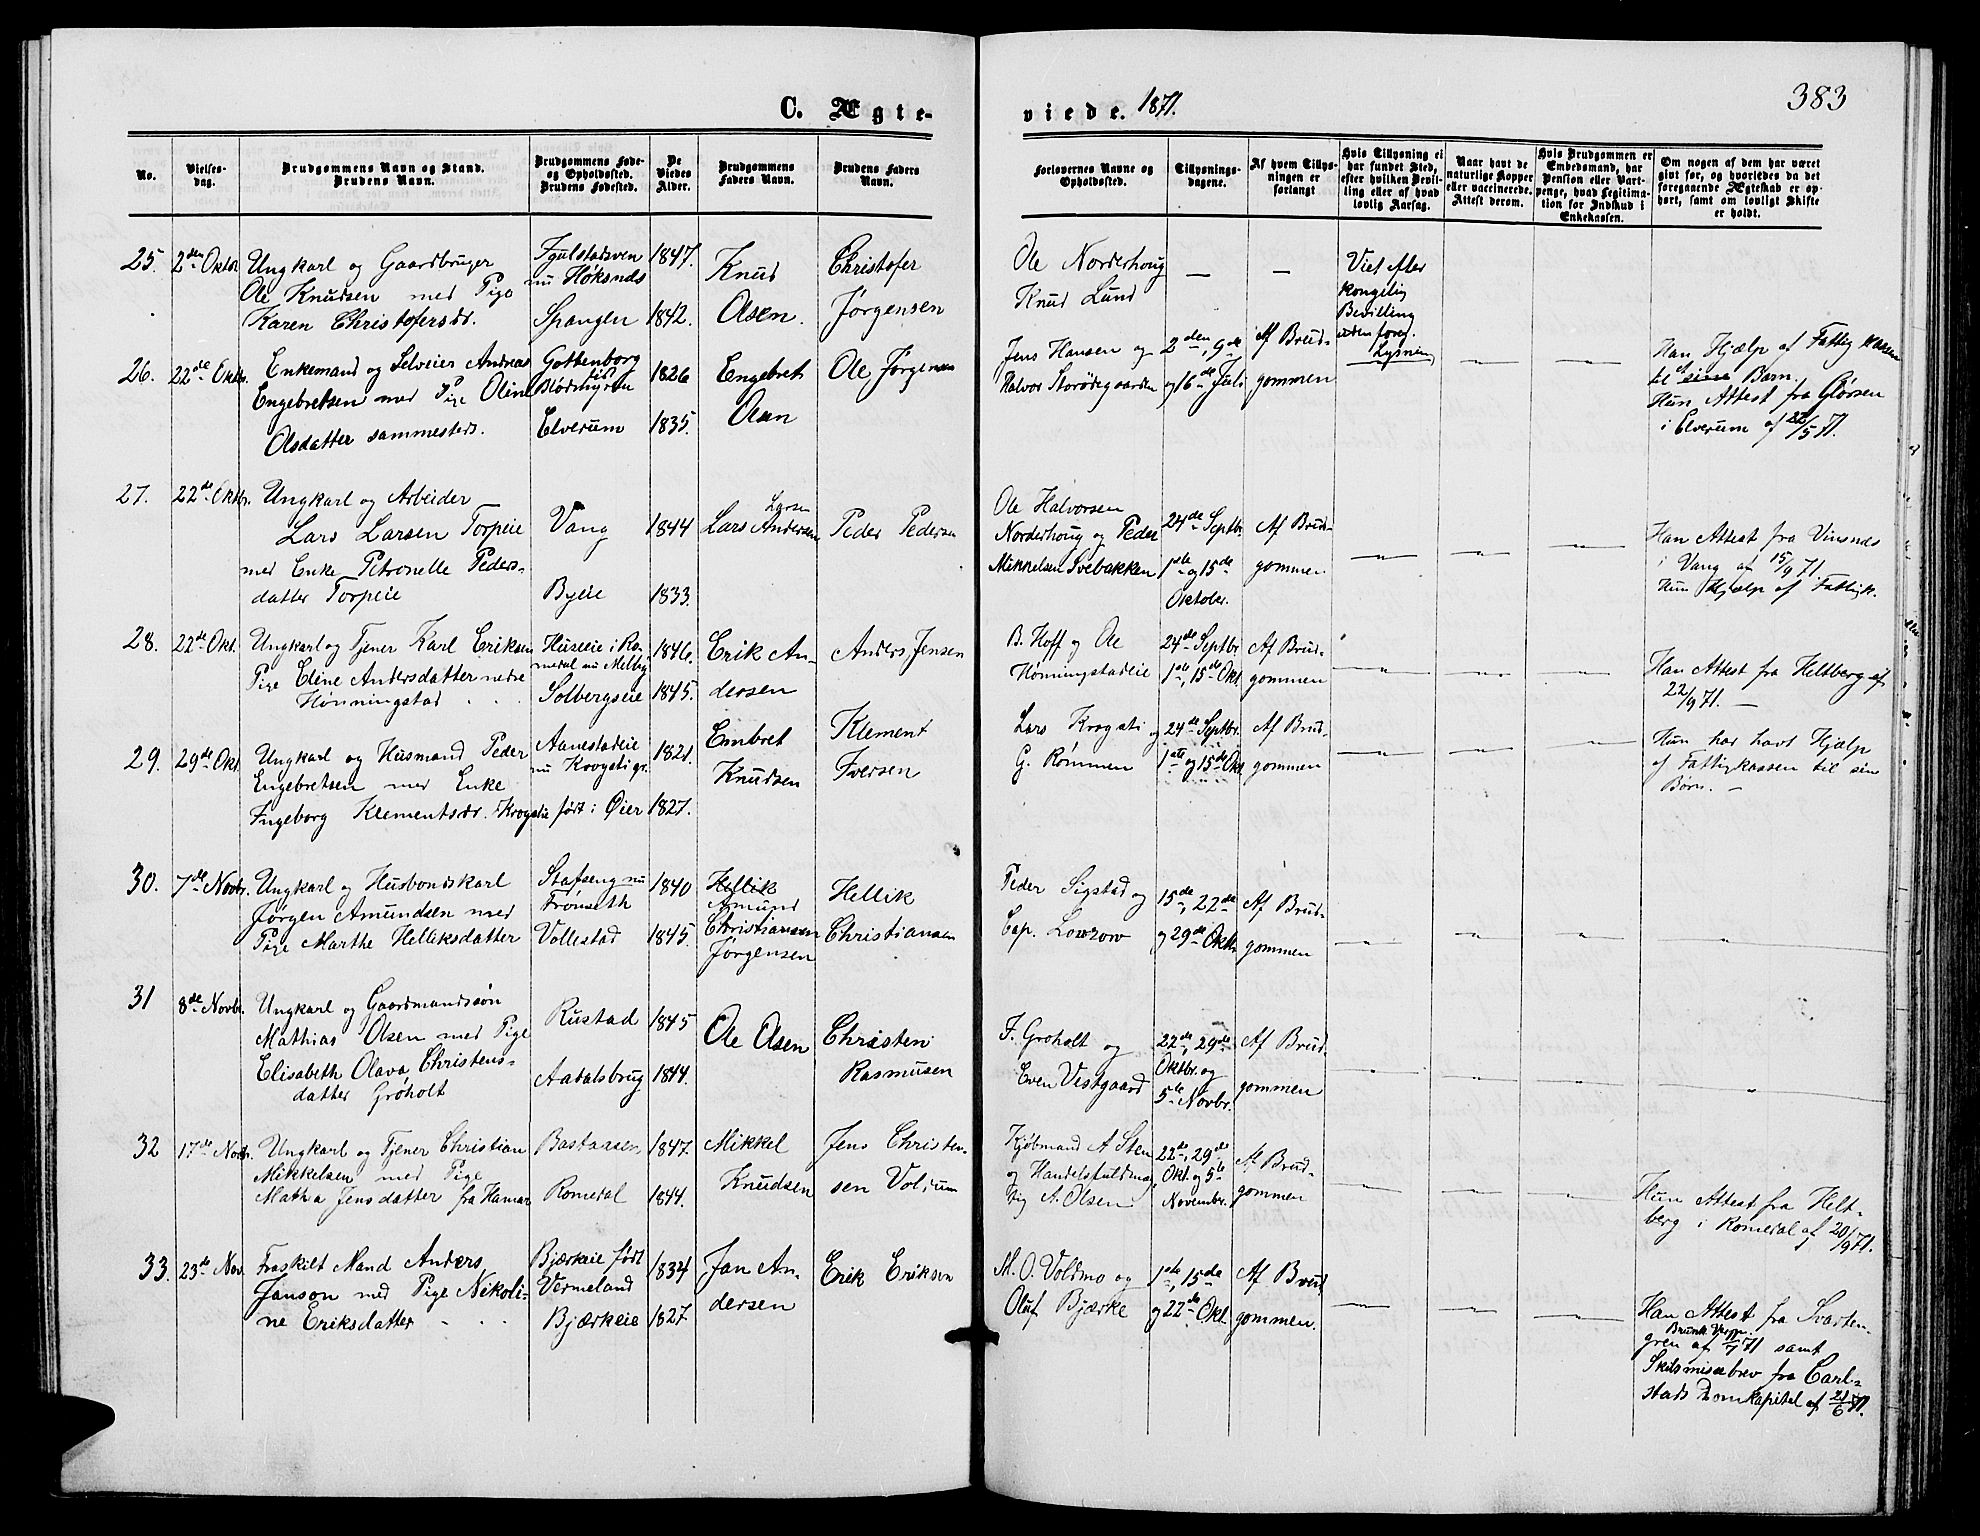 C. Ægte-
viede. 1871.
383
No.
Vielses-
dag.
Brudgommens Navn og Stand.
Brudens Navn.
Brudgommens Føde-
og Opholdsted.
Brudens Fødested.
De
Viedes
Alder.
Brudgommens
Faders Navn.
Brudens Faders
Navn.
Forlovernes Navne og
Opholdsted.
Tillysnings-
dagene.
Af hvem Tillys-
ningen er
forlangt.
Hvis Tillysning ei
har fundet Sted,
efter hvilken Bevil-
ling eller af hvad
lovlig Aarsag.
Naar havt de
naturlige Kopper
eller vaccinerede.
Attest derom.
Hvis Brudgommen er
Embedsmand, har
Pension eller Vart-
penge, hvad Legitima-
tion for Indskud i
Enkekassen.
Om nogen af dem har været
givt før, og hvorledes da det
foregaaende Ægteskab er op-
hørt, samt om lovligt Skifte
er holdt.
25. 2den Oktbr.
Ungkarl og Gaardbruger
Ole Knudsen med Pige
Karen Christofersdr.
nu Høksnds
Spangen
1847.
1842.
Knud
Olsen.
Christofer
Jørgensen
Ole Norderhoug
Knud Lund
— —
Viet efter
kongelig
Bevilling
uden foreg.
Lysning
26. 22de Oktbr.
Enkemand og Selveier Andreas
Engebretsen med Pige Oline
Olsdatter sammesteds.
Gottenborg
Blodmyren
Elverum
1826
1835.
Engebret
Olsen
Ole Jørgensen
Jens Hansen og
Halvor Storødegaarden
2den, 9de
og 16de Juli
Af Brud-
gommen
Han Hjælp af Fattigkassen
til sine Barn.
Hun Attest fra Glørsen
i Elverum af 22/5 71.
27. 22de Oktbr.
Ungkarl og Arbeider
Lars Larsen Torpeie
med Enke Petronelle Peders-
datter Torpeie
Vang
Byeie
1844
1833.
Larsen
Lars Andersen
Peder Pedersen
Ole Halvorsen
Norderhoug og Peder
Mikkelsen Svebakken
24de Septbr.
1ste og 15de
Oktober.
Af Brud-
gommen
Han Attest fra Vinsnds
i Vang af 15/9 71.
Hun Hjælp af Fattigk.
28. 22de Okt.
Ungkarl og Tjener Karl Eriksen
Pige Eline Andersdatter nedre
Hønningstad
Huseie i Ro-
medal nu Melby
Solbergseie
1846.
1845.
Erik An-
dersen
Anders Jensen
B. Hoff og Ole
Hønningstadeie
24de Septbr
1ste, 15de Okt.
Af Brud-
gommen
Han Attest fra Heltberg af
22/9 71. —
29. 29de Okt.
Ungkarl og Husmand Peder
Engebretsen med Enke
Ingeborg Klementsdr. Krogstie født i Øier
Aanestadeie
nu Krogstigr.
1821.
1827.
Embret
Knudsen
Klement
Iversen
Lars Krogsti og
G. Rømmen
24de Septbr.
1ste og 15de Okt.
Af Brud-
gommen
Hun har havt Hjælp
af Fattigkassen til sin
Børn. —
30. 7de Novbr.
Ungkarl og Husbondskarl
Jørgen Amundsen med
Pige Marthe Helliksdatter
Stafseng nu
Frønseth
Vollestad
1840
1845.
Hellik
Amund
Christiansen
Jørgensen
Hellik
Christiansen
Peder Sigstad og
Cap. Lowzow
15de, 22de
og 29de Oktbr.
Af Brud-
gommen
31
8de Novbr.
Ungkarl og Gaardmandssøn
Mathias Olsen med Pige
Elisabeth Olava Christens-
datter Grøholt
Rustad
Aadalsbrug
1845
1844.
Ole Olsen
Christen
Rasmusen
F. Groholt og
Even Vestgaard
22de, 29de
Oktbr. og
5te Novbr.
Af Brud-
gommen
32 17de Novbr.
Ungkarl og Tjener Christian
Mikkelsen med Pige
Mathea Jensdatter fra Hamar
Romedal
1847.
1844.
Mikkel
Knudsen
Jens Christen-
sen Volrum
Kjøbmand A Sten
og Handelsfuldmæg-
tig A. Olsen
22de, 29de
Okt. og 5te
November.
Af Brud-
gommen
Hun Attest fra Helt-
berg i Romedal af 20/9 71.
33. 23de Nov.
Fraskilt Mand Anders
Janson med Pige Nikoli-
ne Eriksdatter
Bjærkeie født
Vermeland
Bjærkeie
1834
1827
Jan An-
dersen
Erik Eriksen
M. O. Voldmo og
Oluf Bjærke
1ste, 15de
og 22de Okt.
Af Brud
gommen.
Han Attest fra Svarten-
gren af 71 samt
Skilsmissebrev fra Carl-
stads Domkapitel af 21/6 71.